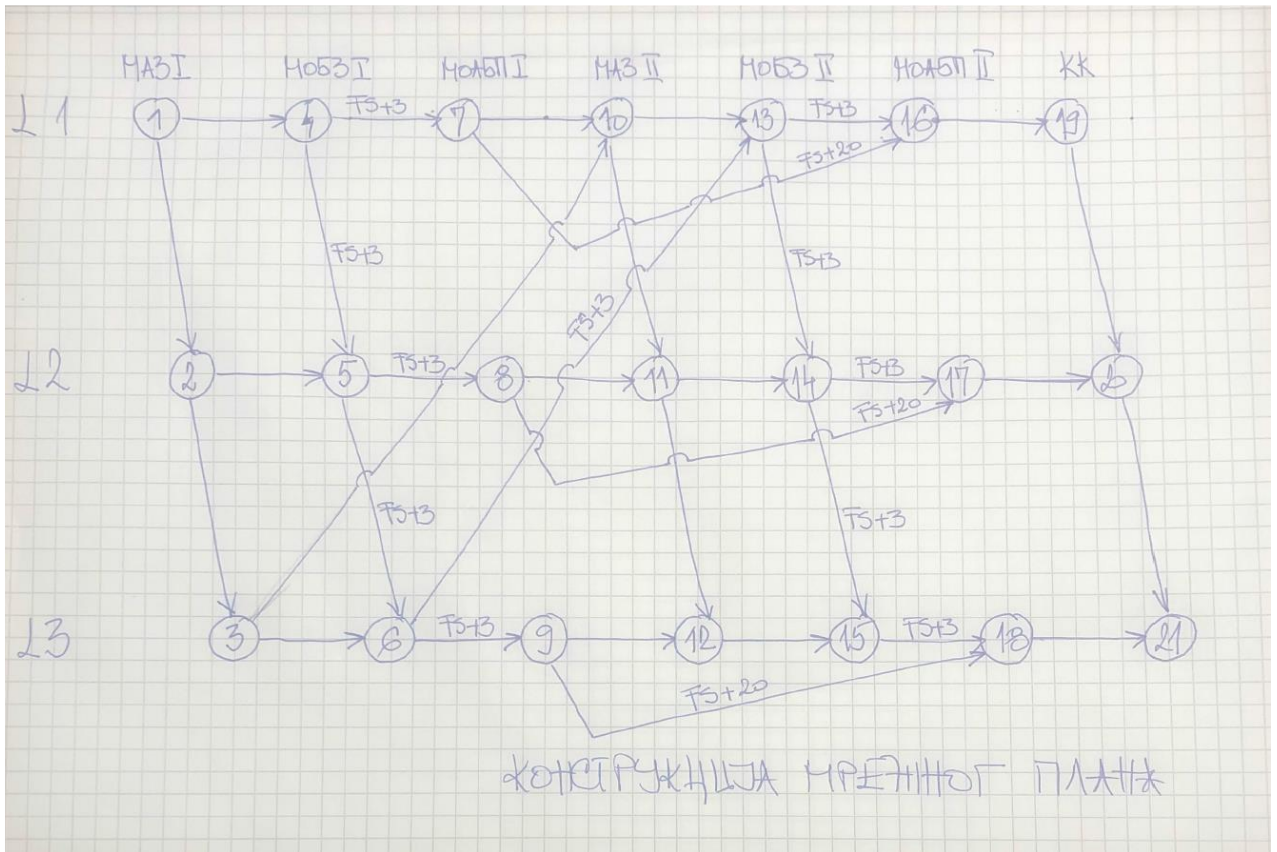 МАЗ I МОБЗ I МОАБП I МАЗ II МОБЗ II МОАБП II КК
L1 1 4 FS+3 7 10 13 FS+3 16 19
FS+20
FS+3 FS+3
FS+3
L2 2 5 FS+3 8 11 14 FS+3 17 20
FS+20
FS+3 FS+3
L3 3 6 FS+3 9 12 15 FS+3 18 21
FS+20
КОНСТРУКЦИЈА МРЕЖНОГ ПЛАНА